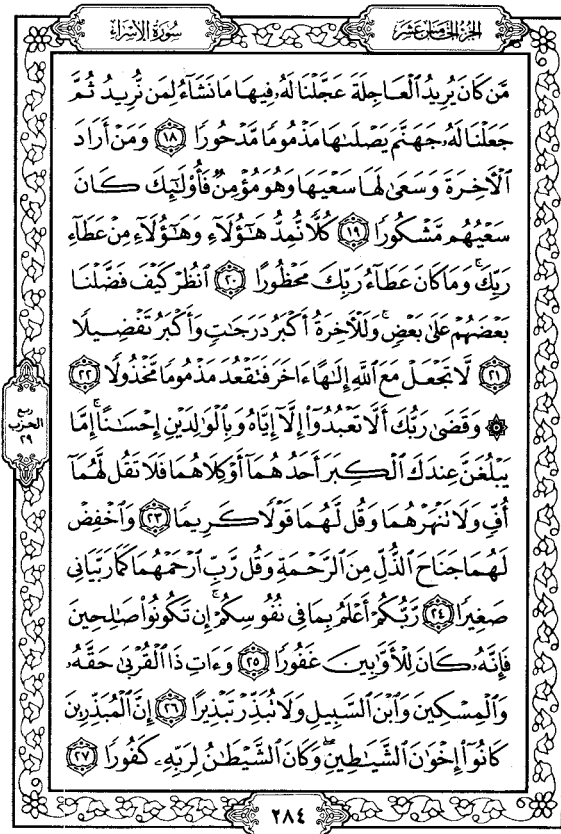 سُورَةُ الْإِسْرَاءِ
الجُزْءُ الخَامِسَ عَشَرَ
مَّن كَانَ يُرِيدُ ٱلْعَاجِلَةَ عَجَّلْنَا لَهُۥ فِيهَا مَا نَشَآءُ لِمَن نُّرِيدُ ثُمَّ
جَعَلْنَا لَهُۥ جَهَنَّمَ يَصْلَىٰهَا مَذْمُومًا مَّدْحُورًا ١٨ وَمَنْ أَرَادَ
ٱلْأَخِرَةَ وَسَعَىٰ لَهَا سَعْيَهَا وَهُوَ مُؤْمِنٌ فَأُو۟لَٰٓئِكَ كَانَ
سَعْيُهُم مَّشْكُورًا ١٩ كُلًّا نُّمِدُّ هَٰٓؤُلَآءِ وَهَٰٓؤُلَآءِ مِنْ عَطَآءِ
رَبِّكَ ۚ وَمَا كَانَ عَطَآءُ رَبِّكَ مَحْظُورًا ٢٠ ٱنظُرْ كَيْفَ فَضَّلْنَا
بَعْضَهُمْ عَلَىٰ بَعْضٍ ۚ وَلَلْأَخِرَةُ أَكْبَرُ دَرَجَٰتٍ وَأَكْبَرُ تَفْضِيلًا
٢١ لَّا تَجْعَلْ مَعَ ٱللَّهِ إِلَٰهًا ءَاخَرَ فَتَقْعُدَ مَذْمُومًا مَّخْذُولًا ٢٢
۞ وَقَضَىٰ رَبُّكَ أَلَّا تَعْبُدُوٓا۟ إِلَّآ إِيَّاهُ وَبِٱلْوَٰلِدَيْنِ إِحْسَٰنًا ۚ إِمَّا
يَبْلُغَنَّ عِندَكَ ٱلْكِبَرَ أَحَدُهُمَآ أَوْ كِلَاهُمَا فَلَا تَقُل لَّهُمَآ
أُفٍّ وَلَا تَنْهَرْهُمَا وَقُل لَّهُمَا قَوْلًا كَرِيمًا ٢٣ وَٱخْفِضْ
لَهُمَا جَنَاحَ ٱلذُّلِّ مِنَ ٱلرَّحْمَةِ وَقُل رَّبِّ ٱرْحَمْهُمَا كَمَا رَبَّيَانِى
صَغِيرًا ٢٤ رَّبُّكُمْ أَعْلَمُ بِمَا فِى نُفُوسِكُمْ ۚ إِن تَكُونُوا۟ صَٰلِحِينَ
فَإِنَّهُۥ كَانَ لِلْأَوَّٰبِينَ غَفُورًا ٢٥ وَءَاتِ ذَا ٱلْقُرْبَىٰ حَقَّهُۥ
وَٱلْمِسْكِينَ وَٱبْنَ ٱلسَّبِيلِ وَلَا تُبَذِّرْ تَبْذِيرًا ٢٦ إِنَّ ٱلْمُبَذِّرِينَ
كَانُوٓا۟ إِخْوَٰنَ ٱلشَّيَٰطِينِ ۖ وَكَانَ ٱلشَّيْطَٰنُ لِرَبِّهِۦ كَفُورًا ٢٧
ربع
الحزب
٢٩
٢٨٤